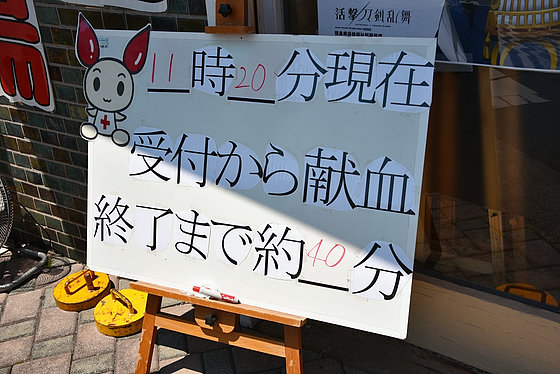 活撃 刀剣乱舞
11時20分現在
受付から献血
終了まで約40分